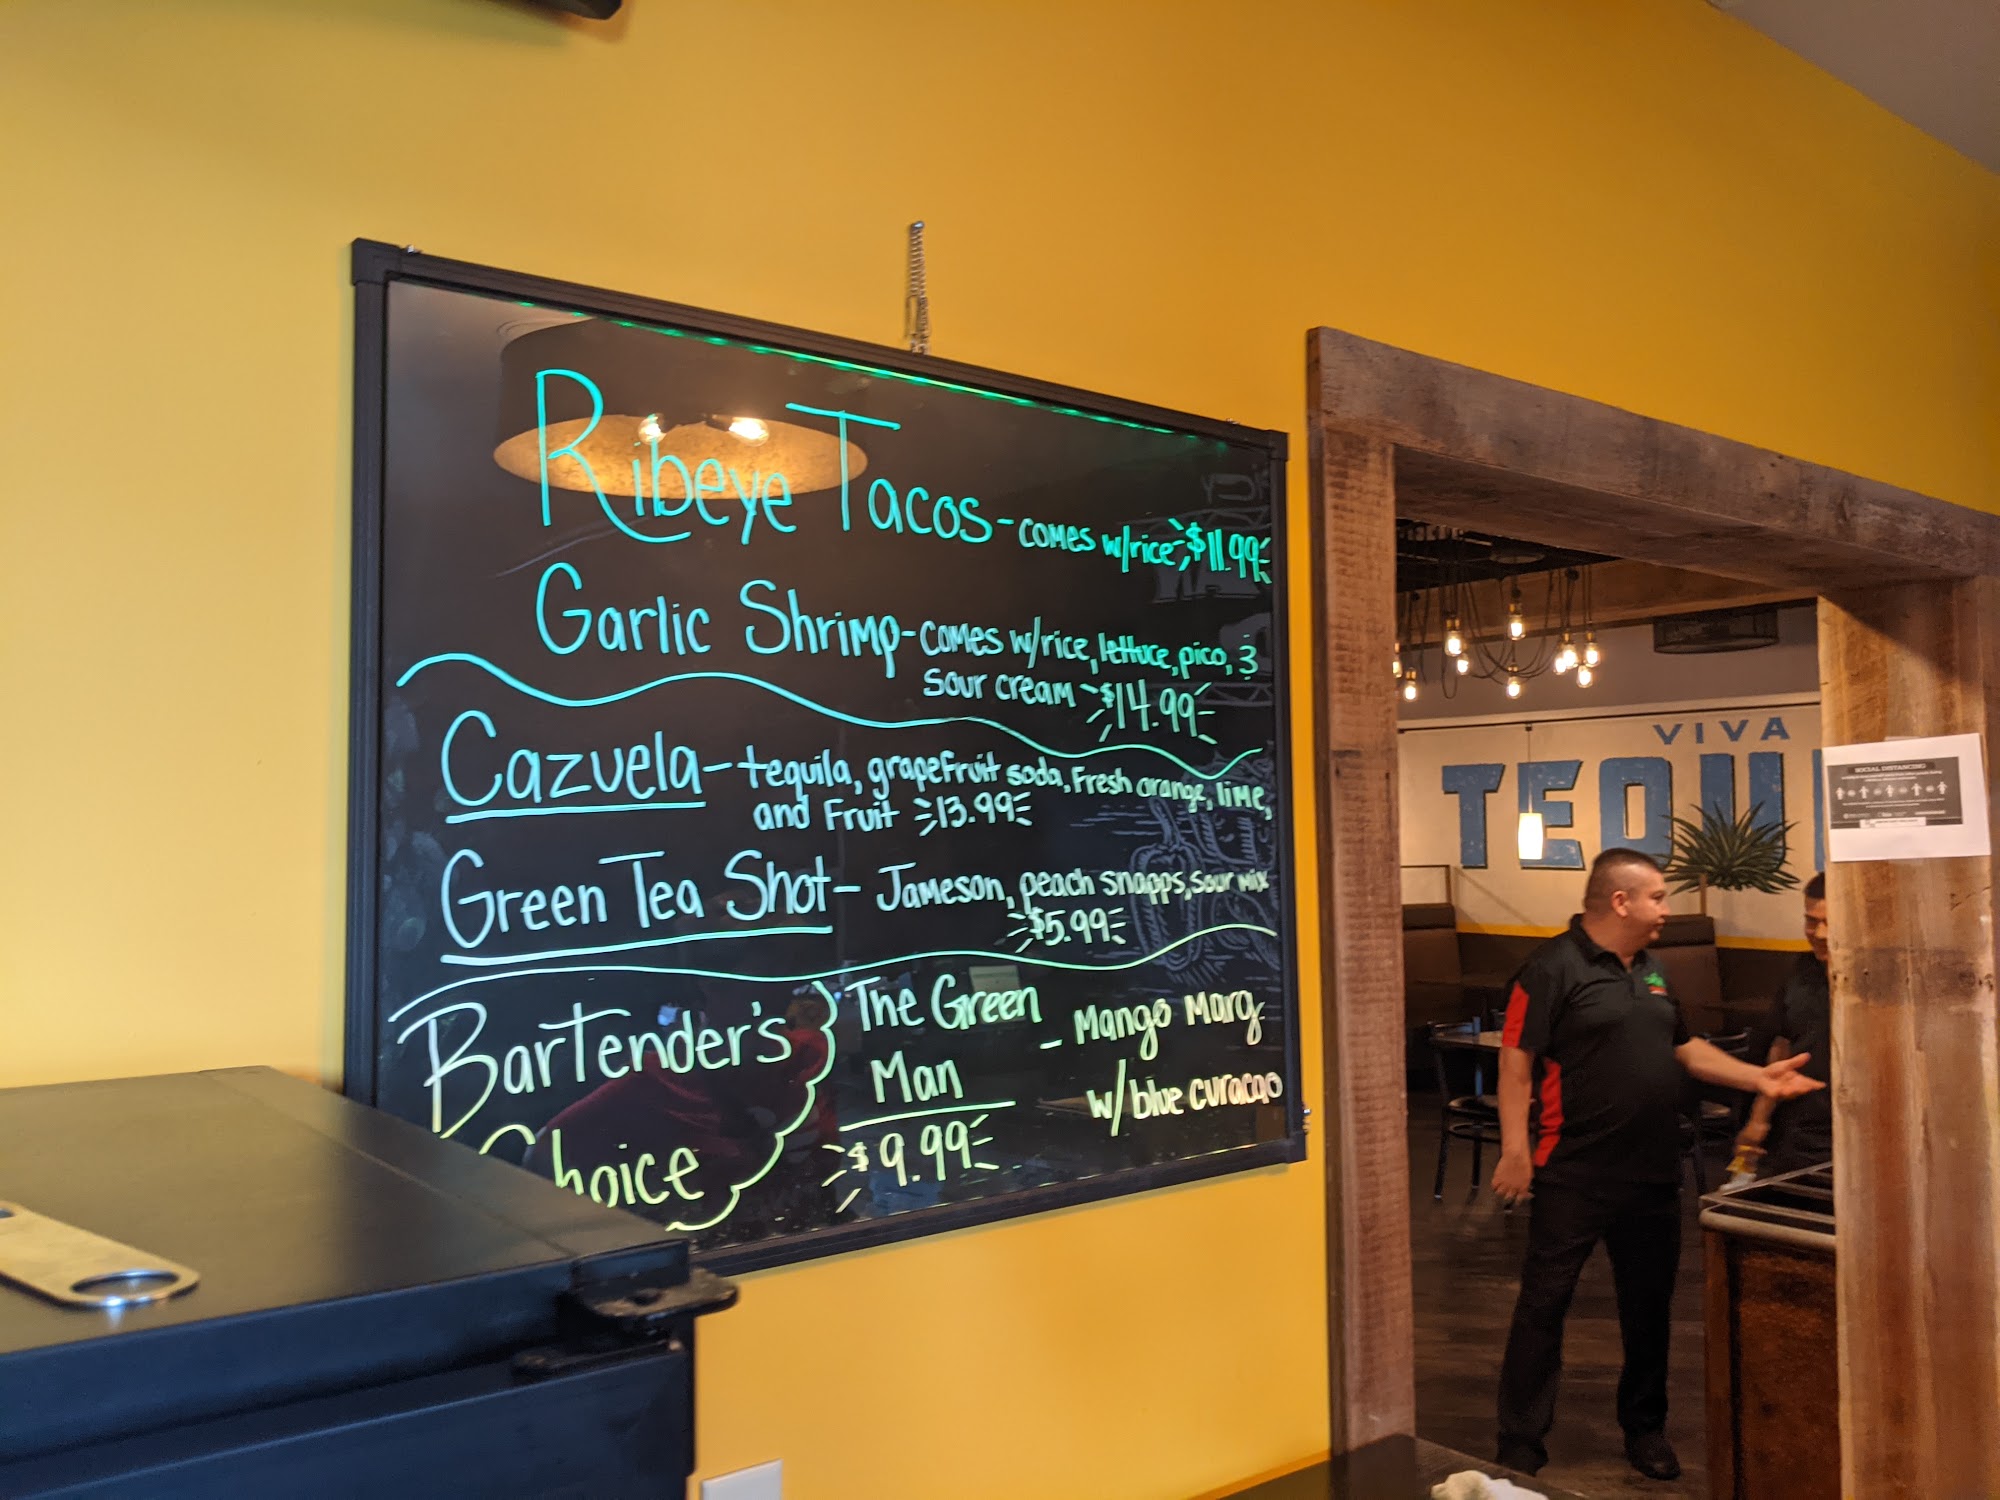 Ribeye Tacos - comes w/rice - $11.99
Garlic Shrimp - comes w/rice, lettuce, pico, &
sour cream - $14.99
Cazuela - tequila, grapefruit soda, Fresh orange, lime,
and Fruit 13.99
Green Tea Shot - Jameson, peach snapps, sour mix
$5.99
Bartender's
Choice
The Green
Man
$9.99
- Mango Marg
w/blue curacao
VIVA
TEQU
SOCIAL DISTANCING